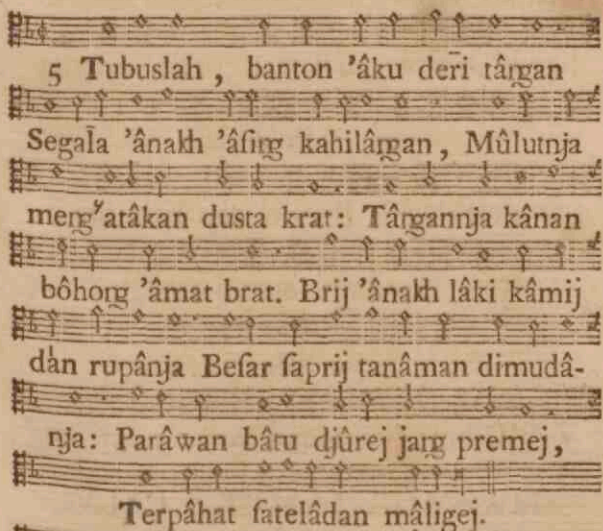 5 Tubuslah, banton 'âku der̄i tângan
Segal̄a 'ânakh 'âſing kahilângan, Mûlutnja
meng'atâkan dusta krat: Tângannja kânan
bôhong 'âmat brat. Brij 'ânakh lâki kâmij
dàn rupânja Beſar ſaprij tanâman dimudâ-
nja: Parâwan bâtu djûrej jang premej,
Terpâhat ſatelâdan mâligej.